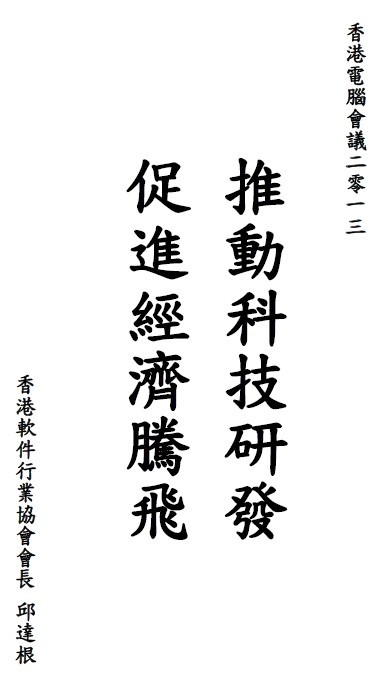 香港電腦會議二零一三
推動科技研發
促進經濟騰飛
香港軟件行業協會會長 邱達根